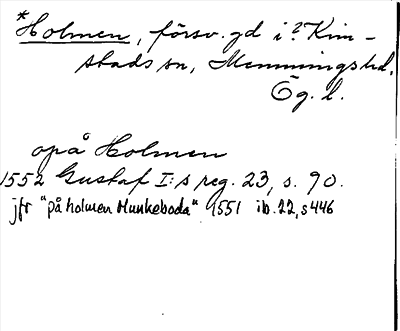 *Holmen, försv. gd i ? Kim-
stads sn, Memmings hd.
Ög. l.
opå Holmen
1552 Gustaf I:s reg. 23, s. 90.
jfr "på holmen Munkeboda" 1551 ib. 22, s 446